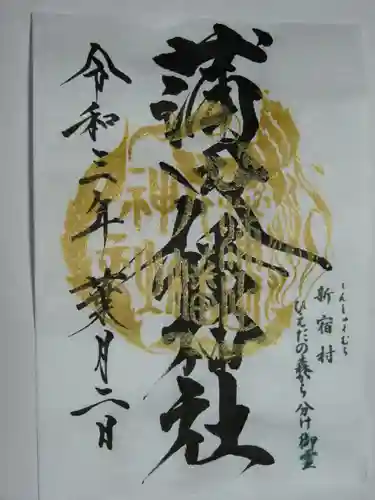 しんしゅくむら
新宿村
ひえだの森から分け御霊
蒲田八幡神社
令和三年葉月二日